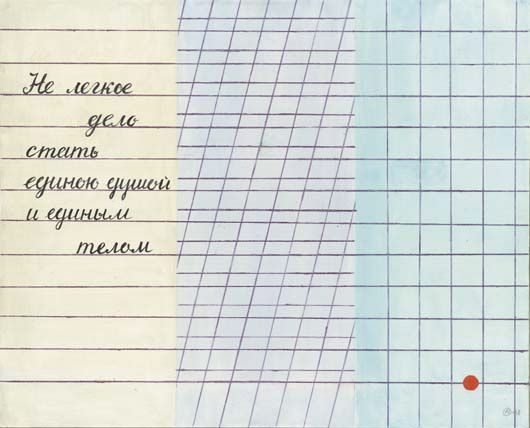 Не легкое
дело
стать
единою душой
и единым
телом